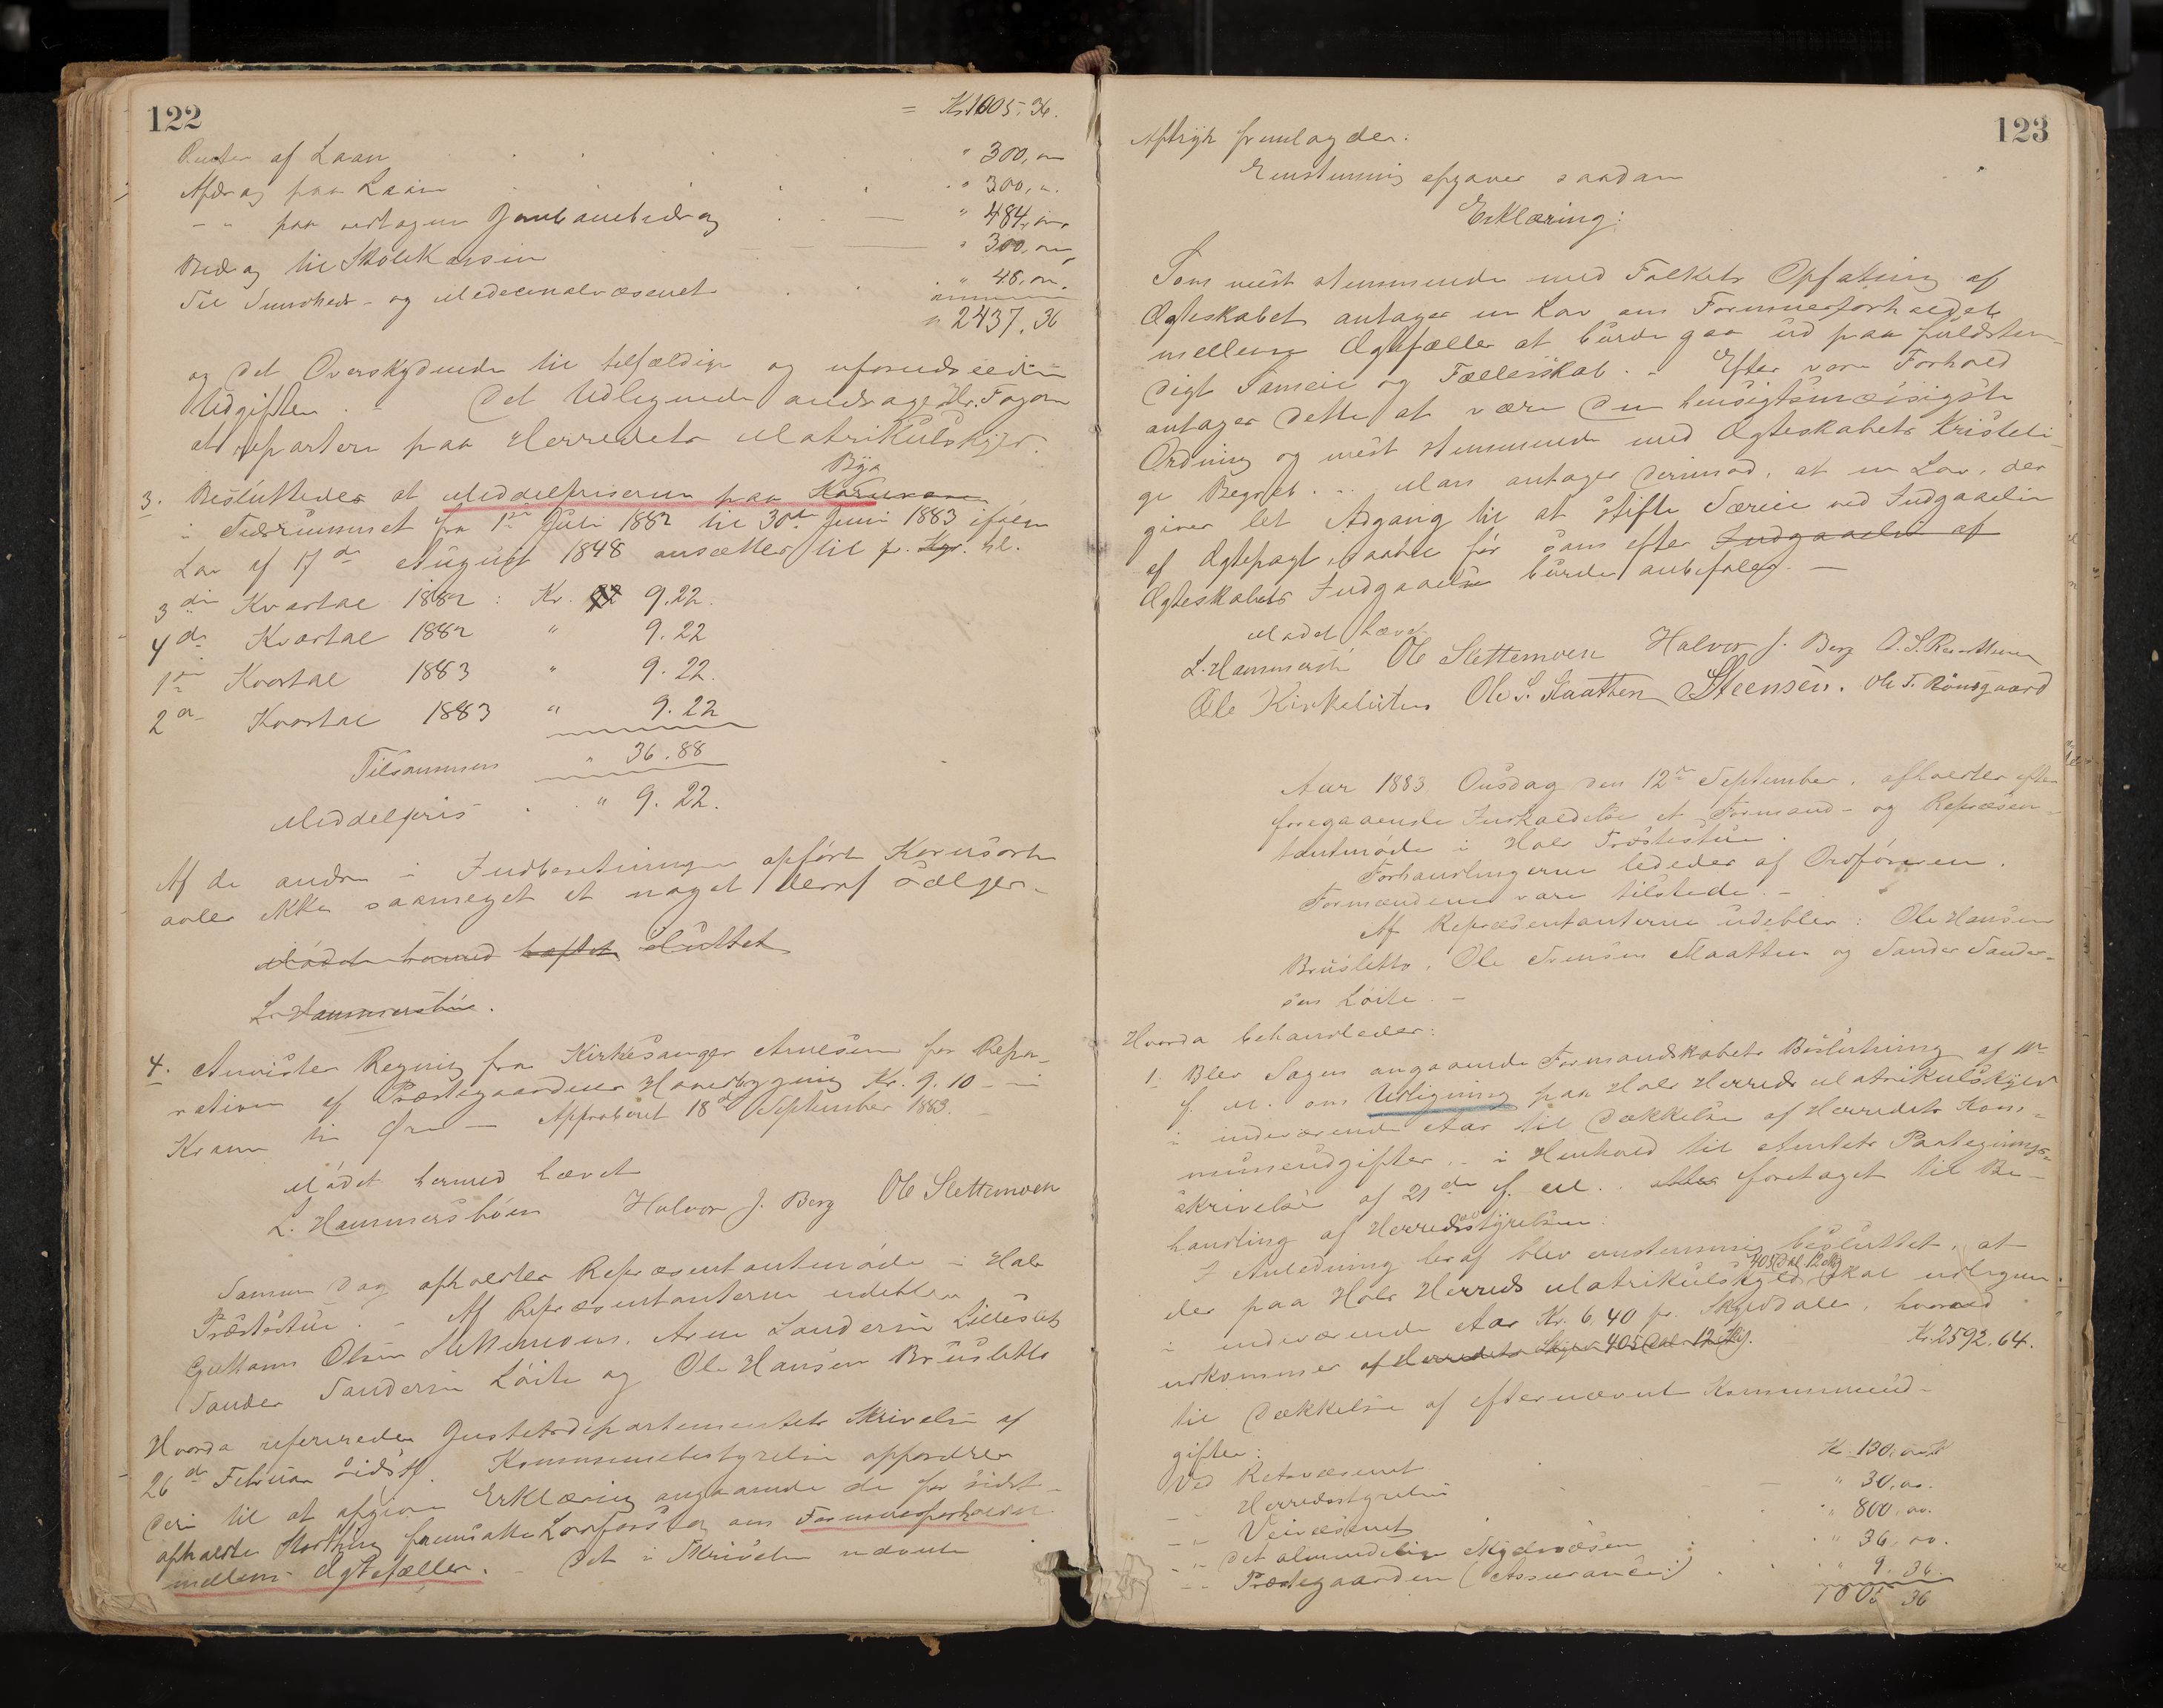 122
= Kr 1005,36.
Renter af Laan " 300,00
Afdrag paa Laan " 300,00
- " paa vedtagne Jernbanebidrag " 484,00
Bidrag til Skolekassen " 300,00
Til Sundheds- og Medecinalvæsenet " 48,00
" 2437,36
og det Overskydende til tilfældige og uforudseede
Udgifter. - Det Udlignede andrager Hr. Fogden
at repartere paa Herredets Matrikulskyld.
3. Besluttedes at Middelpriserne paa Kornvarer Byg
i Tidsrummet fra 1ste Juli 1882 til 30te Juni 1883 ifølge
Lov af 17de August 1848 ansættes til pr. Kgr. hl.
3die Kvartal 1882 : Kr. 9.22.
4de Kvartal 1882 " 9.22
1ste Kvartal 1883 " 9.22.
2det Kvartal 1883 " 9.22
Tilsammen " 36.88
Middelpris " 9.22.
Af de andre i Indberetningen opførte Kornsorter
avles ikke saameget at noget deraf sælges.
Mødet hermed hævet sluttet
L. Hammersbøen.
4. Anvistes Regning fra Kirkesanger Arnesen for Repa-
ration af Præstegaardens Hovedbygning Kr. 9.10 - ni
Kroner ti Øre - Approberet 18de September 1883.
Mødet hermed hævet
L. Hammersbøen Halvor J. Berg Ole Slettemoen
Samme Dag afholdtes Repræsentantmøde i Hols
Præstestue. - Af Repræsentanterne udeblev
Guttorm Olsen Slettemoen, Arne Sanderse Lilleslet
Sander Sandersen Løite og Ole Hansen Brusletto
Hvorda refereredes Justitsdepartementets Skrivelse af
26de Februar sidstl. Kommunebestyrelsen opfordres
deri til at afgive Erklæring angaaende de for sidst-
afholdte Storthing fremsatte Lovforslag om Formuesforholdet
mellem Ægtefæller. - Det i Skrivelsen nævnte
123
Aftryk fremlagdes.
Enstemmig afgaves saadan
Erklæring:
Som mest stemmende med Folkets Opfatning af
Ægteskabet antages en Lov om Formuesforholdet
mellem Ægtefæller at burde gaa ud paa fuldstæn-
digt Sameie og Fællesskab. - Efter vore Forhold
antages dette at være den hensigtsmæssigste
Ordning og mest stemmende med Ægteskabets kristeli-
ge Begreb. - Man antager derimod, at en Lov, der
giver let Adgang til at stifte Særeie ved Indgaaelse
af Ægtepagt, saavel før som efter Indgaaelse af
Ægteskabets Indgaaelse burde anbefales. -
Mødet hævet.
L. Hammersbø Ole Slettemoen Halvor J. Berg
Ole Kirkelieten Ole S. Staatten Steensen. Ole T. Rønsgaard
Aar 1883 Onsdag den 12te September, afholdtes efter
foregaaende Indkaldelse et Formand- og Repræsen-
tantmøde i Hols Præstestue.
Forhandlingerne lededes af Ordføreren.
Formændene vare tilstede. -
Af Repræsentanterne udeblev: Ole Hansen
Brusletto, Ole Svensen Staatten og Sander Sander-
sen Løite. -
Hvorda behandledes:
1. Blev Sagen angaaende Formandskabets Beslutning af
f. M. om Udligning paa Hols Herreds Matrikulskyld
i indeværende Aar til Dækkelse af Herredets Kom-
muneudgifter, - i Henhold til Amtets Paategnings-
skrivelse af 21de f. M. foretaget til Be-
handling af Herredsstyrelsen:
I Anledning heraf blev enstemmig besluttet, at
der paa Hols Herreds Matrikulskyld 405 Dal. 12 skal udlignes
i indeværende Aar Kr. 6,40 pr. Skylddaler, hvorved
udkommer af Herredets Skyld 405 Dal. 12 Kr. 2592,64.
til Dækkelse af efternævnte Kommuneud-
gifter:
Ved Retsvæsenet Kr 130,00
- " Herredsstyrelsen " 30,00.
- " Veivæsenet " 800,00.
- " Det almindelige Skydsvæsen " 36,00.
- " Præstegaarden (Assurance:) " 9.36.
1005 36